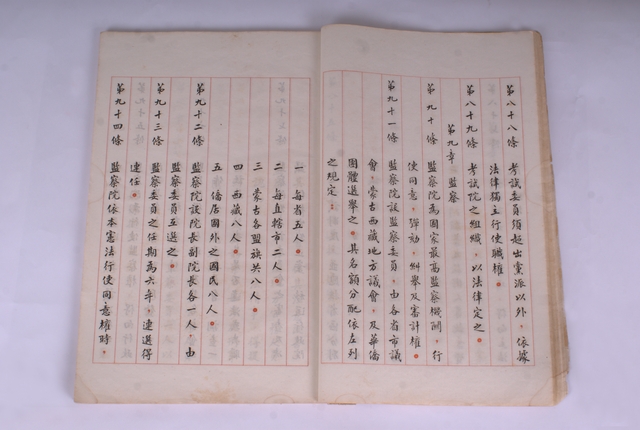 第八十八條　考試委員須超出黨派以外，依據
法律獨立行使職權。
第八十九條　考試院之組織，以法律定之。
第九章　監察
第九十條　監察院為國家最高監察機關，行
使同意，彈劾，糾舉及審計權。
第九十一條　監察院設監察委員，由各省市議
會，蒙古西藏地方議會，及華僑
團體選舉之。其名額分配依左列
之規定：
一　每省五人。
二　每直轄市二人。
三　蒙古各盟旗共八人。
四　西藏八人。
五　僑居國外之國民八人。
第九十二條　監察院設院長副院長各一人，由
監察委員互選之。
第九十三條　監察委員之任期為六年，連選得
連任。
第九十四條　監察院依本憲法行使同意權時，